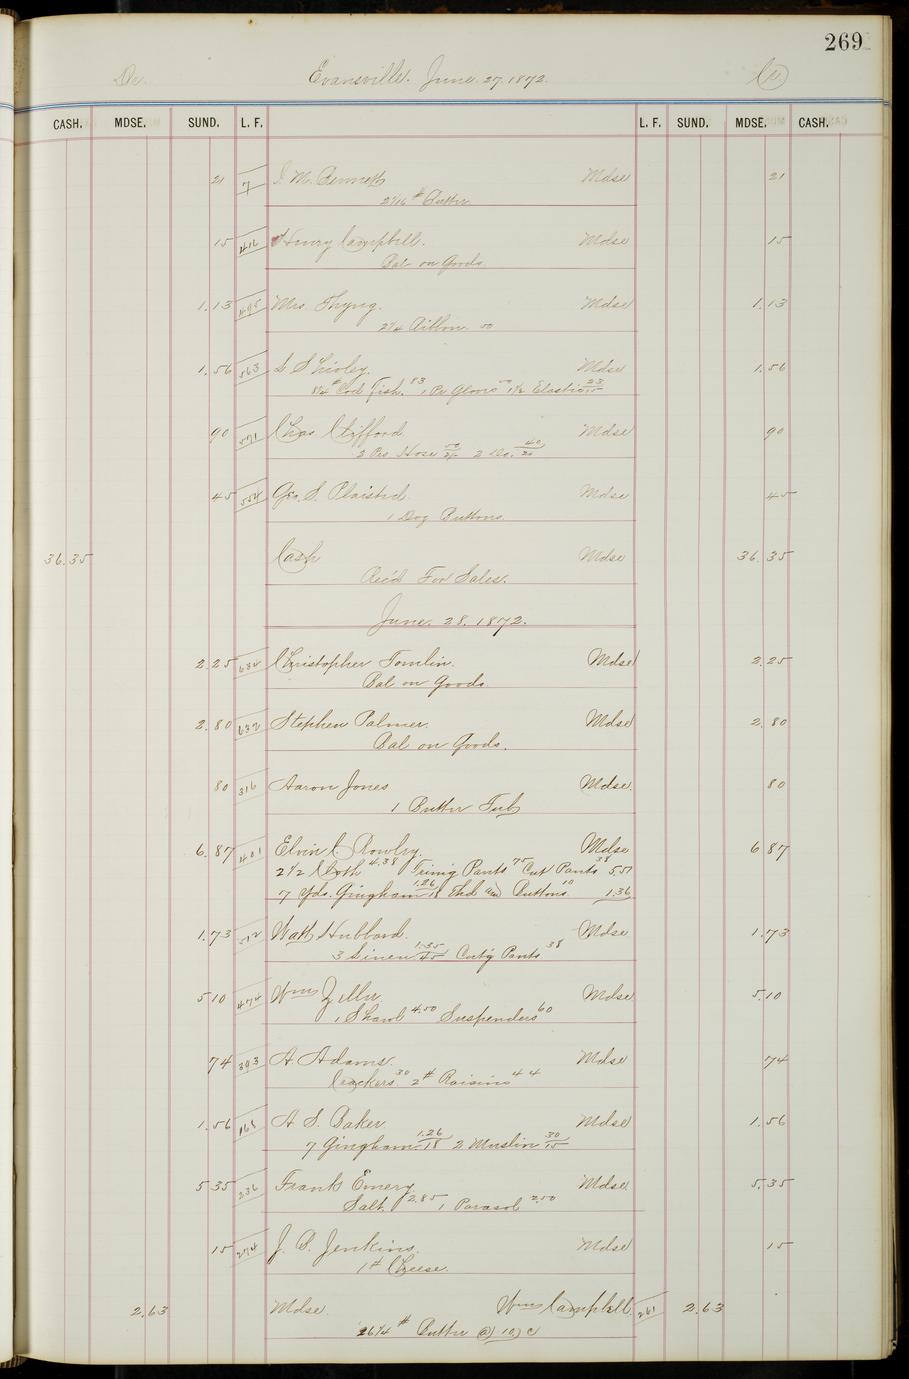 269
Dr. Evansville. June. 27. 1872. Cr
CASH. MDSE. SUND. L. F. L. F. SUND. MDSE. CASH.
21 7 M. Bennett Mdse 21
2 1/16 # Butter
15 416 Henry Campbell. Mdse 15
Bal on Goods
1.13 495 Mrs. Thyng. Mdse 1.13
2 1/4 Ribbon 50
1.56 563 S Shirley. Mdse 1.56
8 1/4 # Cod Fish. 83 1 Pr Gloves 50 1 1/2 Elastic 23/15
90 571 Chas. Clifford. Mdse 90
2 Prs Hose 50/25 2 Do. 40/20
45 554 Geo. S. Plaisted. Mdse 45
1 Doz Buttons.
36.35 Cash Mdse 36.35
Rec'd For Sales.
June. 28. 1872.
2.25 634 Christopher Tomlin. Mdse 2.25
Bal on Goods.
2.80 632 Stephen Palmer. Mdse 2.80
Bal on Goods.
80 316 Aaron Jones Mdse. 80
1 Butter Tub
6.87 401 Elvin C. Rowley. Mdse 6 87
2 1/2 Cloth 4.38 Trimg Pants 75 Cut Pants 38 5.51
7 Yds. Gingham 1.26/18 Thd and Buttons 10 1.36
1.73 572 Watt Hubbard. Mdse 1.73
3 Linen 1.35/45 Cut'g Pants 38
5 10 474 Wm Zeller. Mdse 5.10
1 Shawl 4.50 Suspenders 60
74 393 A. Adams. Mdse 74
Crackers 30 2 # Raisins 44
1.56 165 A S. Baker. Mdse 1.56
7 Gingham 1.26/18 2 Muslin 30/15
5 35 236 Frank Emery. Mdse 5.35
Salt. 2.85 1 Parasol 2.50
15 274 J. B. Jenkins. Mdse 15
1 # Cheese.
2.63 Mdse. Wm Campbell. 261 2.63
26 1/4 # Butter @ 10 c